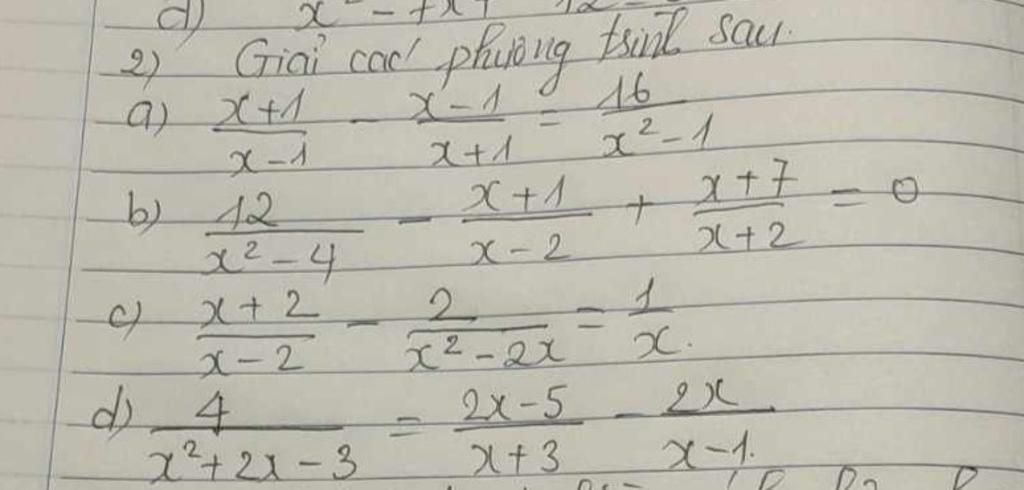 d) x² - 7x + 12 =
2) Giải các phương trình sau.
a) \frac{x+1}{x-1} - \frac{x-1}{x+1} = \frac{16}{x²-1}
b) \frac{12}{x²-4} - \frac{x+1}{x-2} + \frac{x+7}{x+2} = 0
c) \frac{x+2}{x-2} - \frac{2}{x²-2x} = \frac{1}{x}.
d) \frac{4}{x²+2x-3} = \frac{2x-5}{x+3} - \frac{2x}{x-1}.